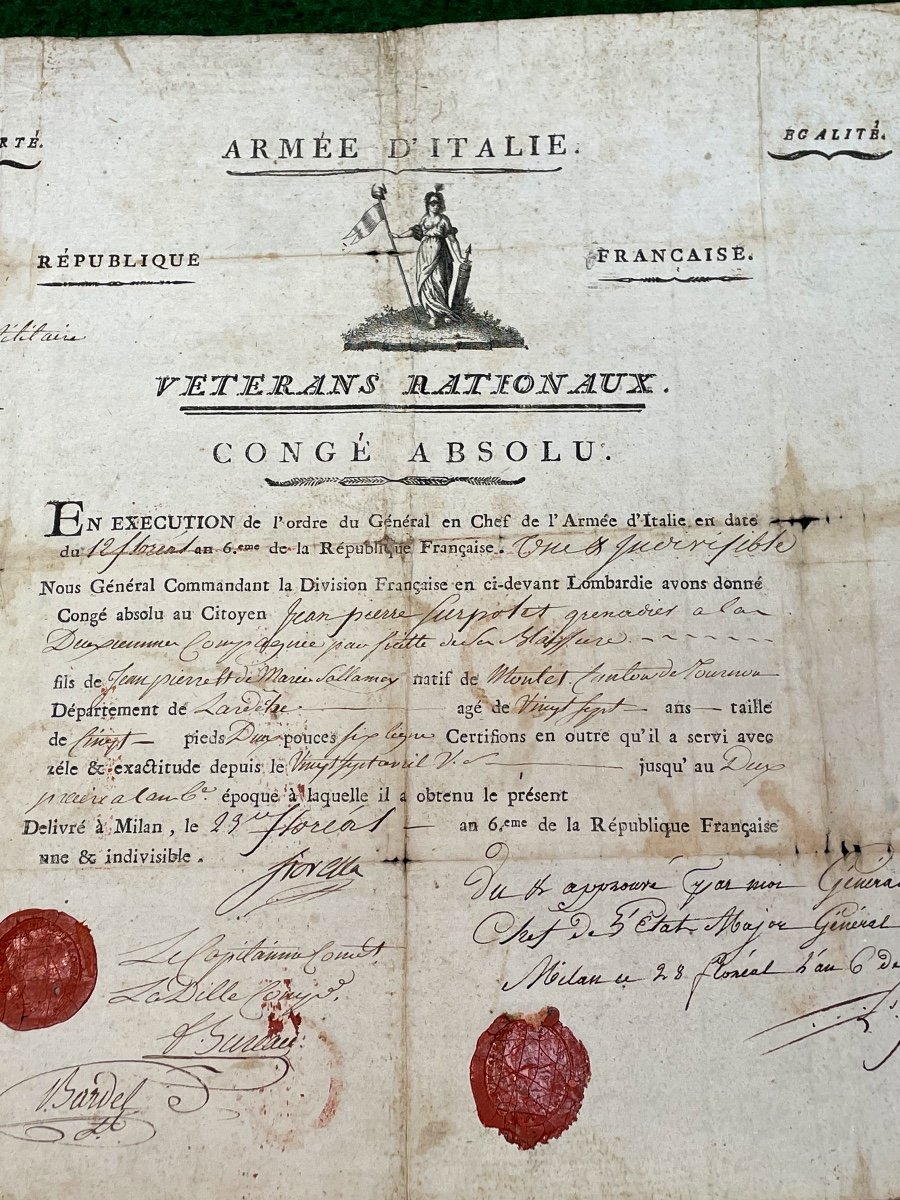 RTÉ.
EGALITÉ.
ARMÉE D'ITALIE.
RÉPUBLIQUE
FRANCAISE.
ilitaire
VETERANS NATIONAUX.
CONGÉ ABSOLU.
EN EXECUTION de l'ordre du Général en Chef de l'Armée d'Italie en date
du 12 floreal an 6.eme de la République Française. Une & Indivisible
Nous Général Commandant la Division Française en ci-devant Lombardie avons donné
Congé absolu au Citoyen Jean pierre grenadier a la
Compagnie par suitte de sa Blassure
fils de Jean pierre et de Marie natif de Canton de Tournon
Département de Lardèche agé de Vingt sept ans taille
de Cinq pieds Deux pouces six ligne Certifions en outre qu'il a servi avec
zéle & exactitude depuis le Vingt sept avril V. S jusqu' au Deux
prairial an 6.e époque à laquelle il a obtenu le présent
Delivré à Milan, le 23 floréal an 6.eme de la République Française
une & indivisible.
fiorella
Vu & approuvé par moi Général
Chef de l'État Major Général
Milan ce 28 floréal l'an 6 de
Le Capitainne Comdt
La Ditte Compe.
Bardel